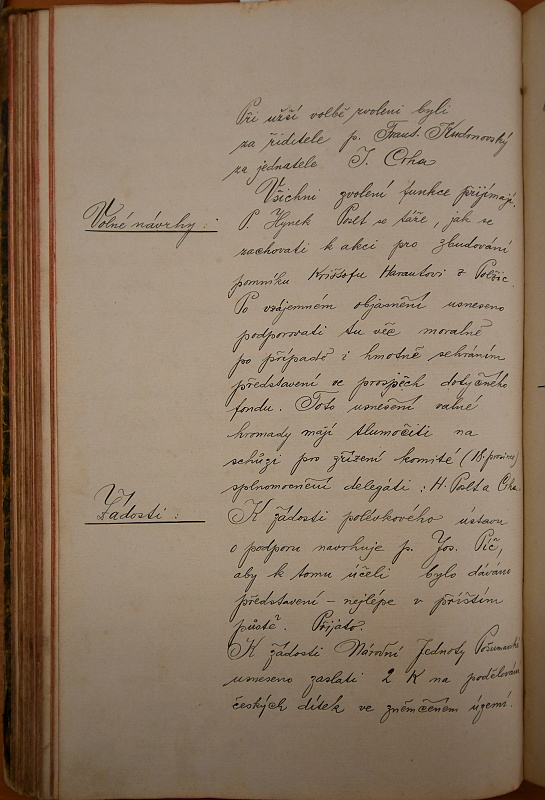 Při užší volbě zvoleni byli
za řiditele p. Frant. Kudrnovský
za jednatele J. Crha
Všichni zvolení funkce přijímají.
Volné návrhy:
P. Hynek Poslt se táže, jak se
zachovati k akci pro zbudování
pomníku Krištofu Harautovi z Polžic.
Po vzájemném objasnění usneseno
podporovati tu věc moralně
po případě i hmotně sehráním
představení ve prospěch dotyčného
fondu. Toto usnešení valné
hromady mají tlumočiti na
schůzi pro zřízení komité (18. prosince)
splnomocnění delegáti: H. Poslt a Crha.
Žádosti:
K žádosti polévkového ústavu
o podporu navrhuje p. Jos. Píč,
aby k tomu účeli bylo dáváno
představení – nejlépe v příštím
půstě. Přijato.
K žádosti Národní Jednoty Pošumavské
usneseno zaslati 2 K na podělování
českých dítek ve zněmčeném území.